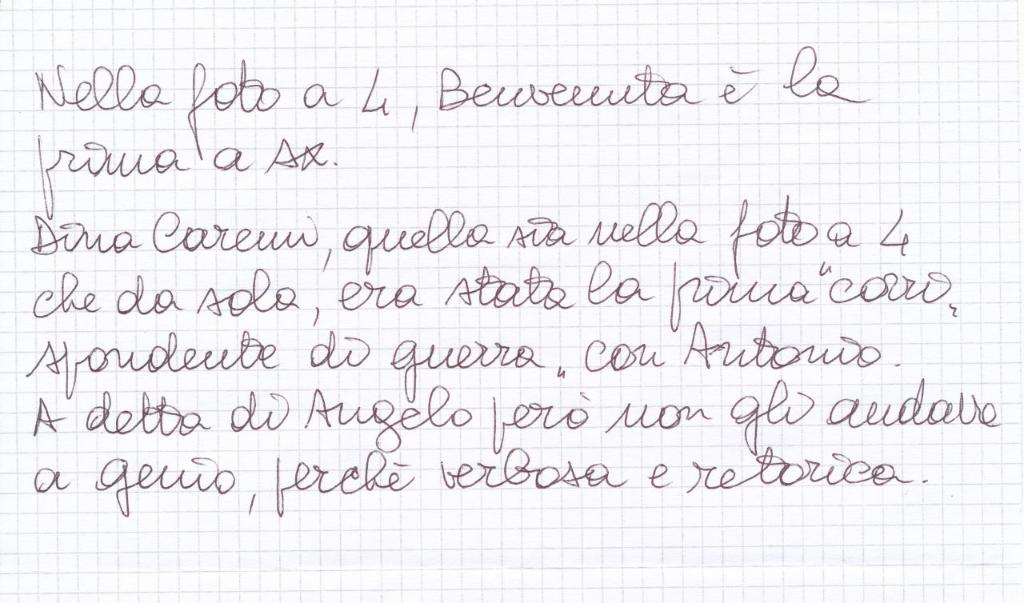 Nella foto a 4, Benvenuta è la
prima a sx.
Dina Caremi, quella sia nella foto a 4
che da sola, era stata la prima "corri-
spondente di guerra" con Antonio.
A detta di Angelo però non gli andava
a genio, perchè verbosa e retorica.